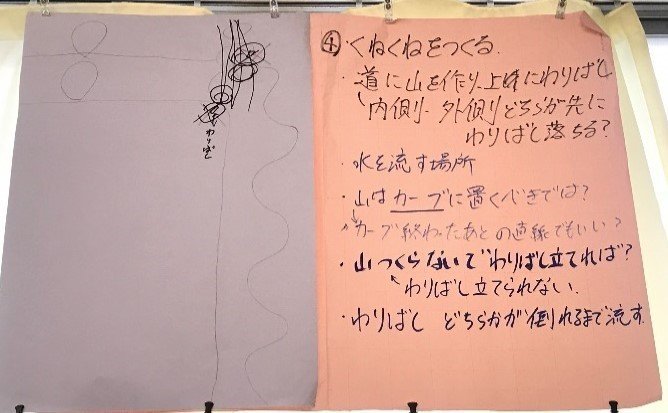 わりばし
④くねくねをつくる
・道に山を作り、上に わりばし
内側 外側 どちらが先に
わりばし落ちる?
・水を流す場所
・山はカーブに置くべきでは?
カーブ終わったあとの直線でもいい?
・山つくらないでわりばし立てれば?
わりばし立てられない.
・わりばし どちらかが倒れるまで流す